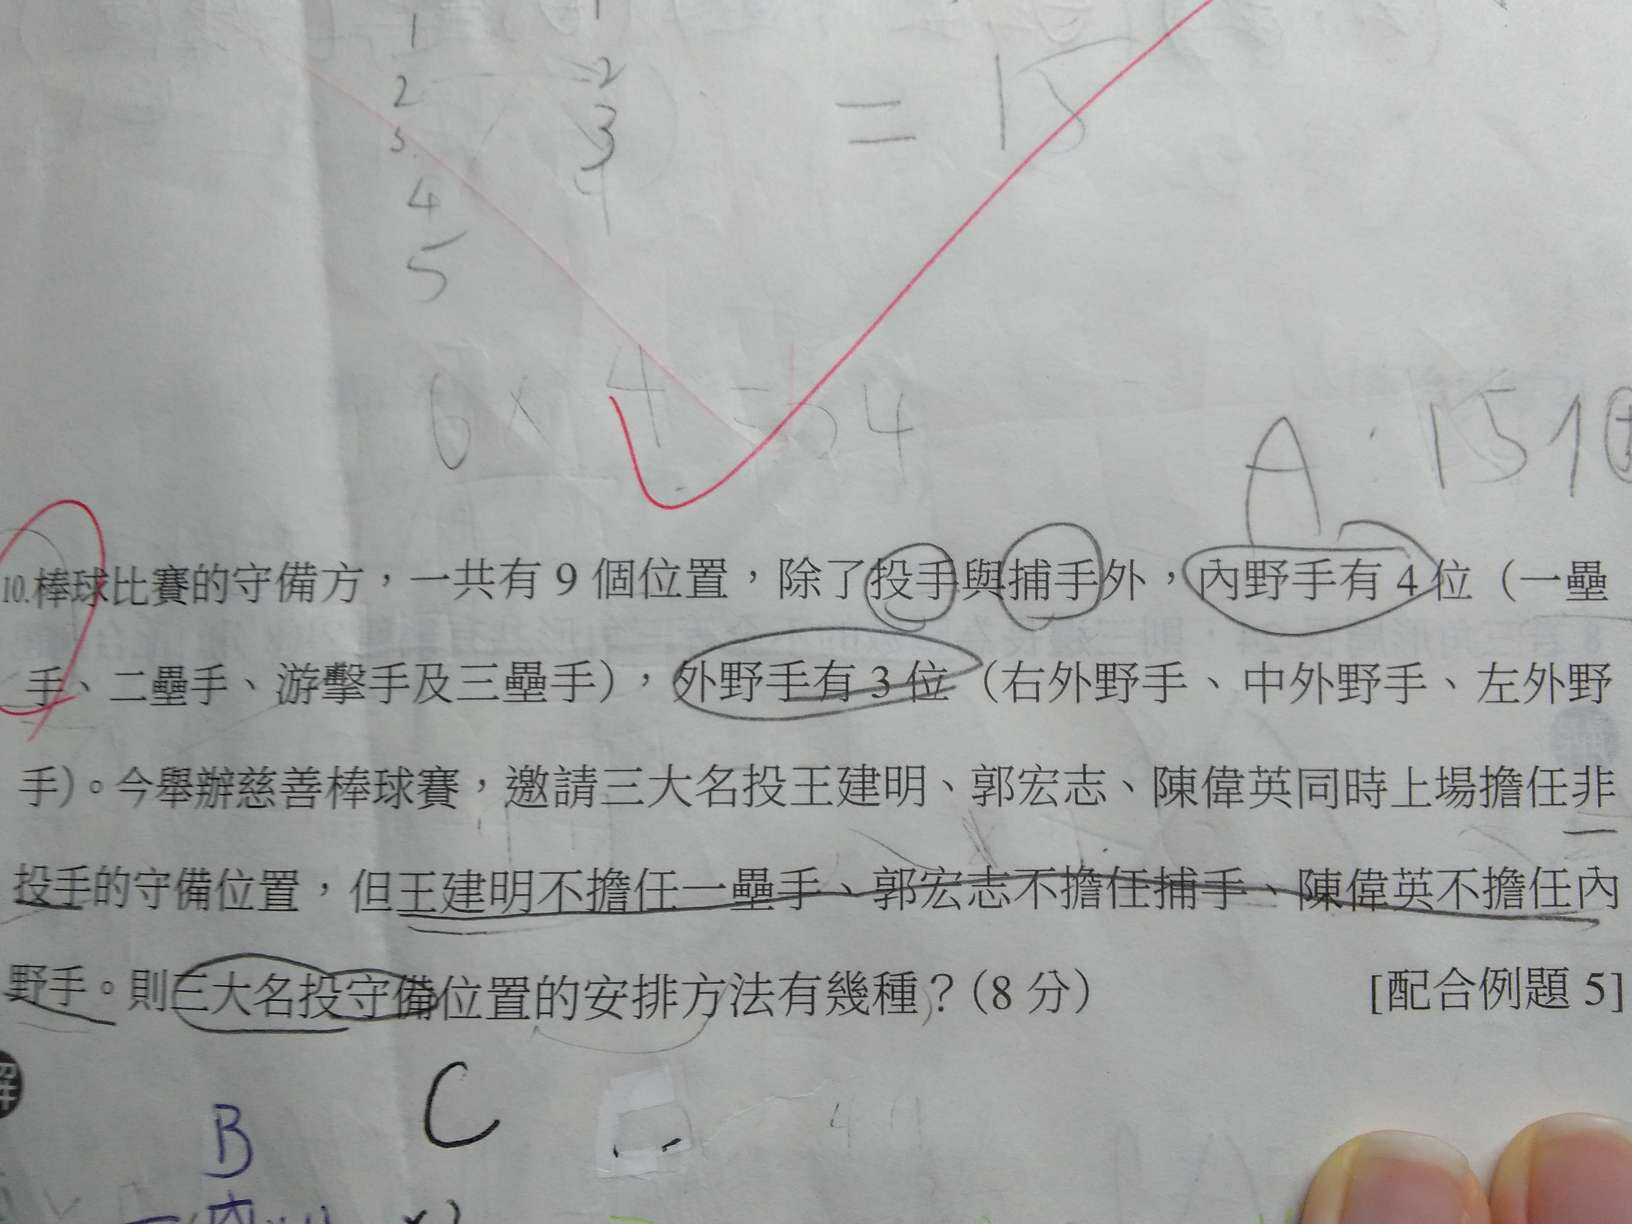 1 1
2 2
3 3 = 15
4 4
5
6 × 4 = 54
A : 151
10.棒球比賽的守備方，一共有 9 個位置，除了投手與捕手外，內野手有 4 位（一壘
手、二壘手、游擊手及三壘手），外野手有 3 位（右外野手、中外野手、左外野
手）。今舉辦慈善棒球賽，邀請三大名投王建明、郭宏志、陳偉英同時上場擔任非
投手的守備位置，但王建明不擔任一壘手、郭宏志不擔任捕手、陳偉英不擔任內
野手。則三大名投守備位置的安排方法有幾種？（8 分） [配合例題 5]
解
B C